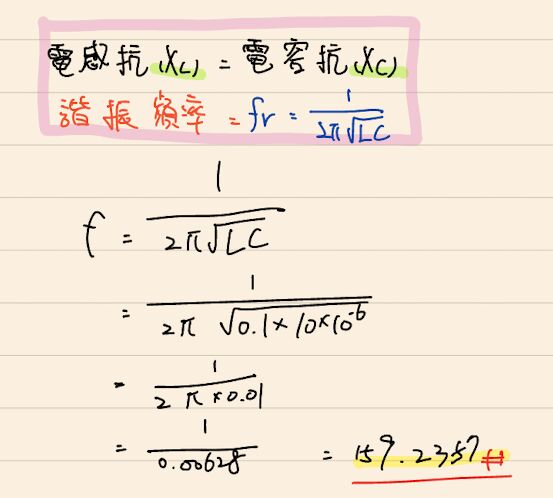 電感抗(XL) = 電容抗(XC)
諧振頻率 = fr = 1/2π√LC
f = 1/2π√LC
= 1/2π √0.1×10×10⁻⁶
= 1/2π×0.01
= 1/0.00628 = 159.2357#